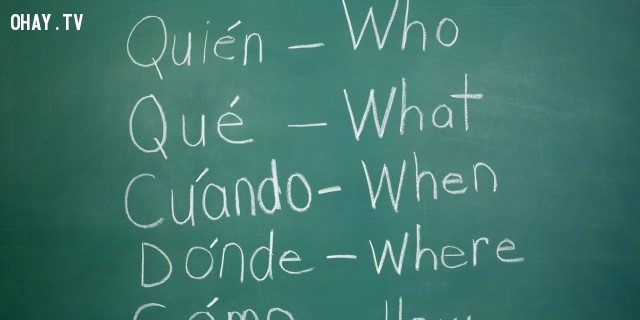 OHAY.TV
Quién – Who
Qué – What
Cuándo – When
Dónde – Where
Cómo – How